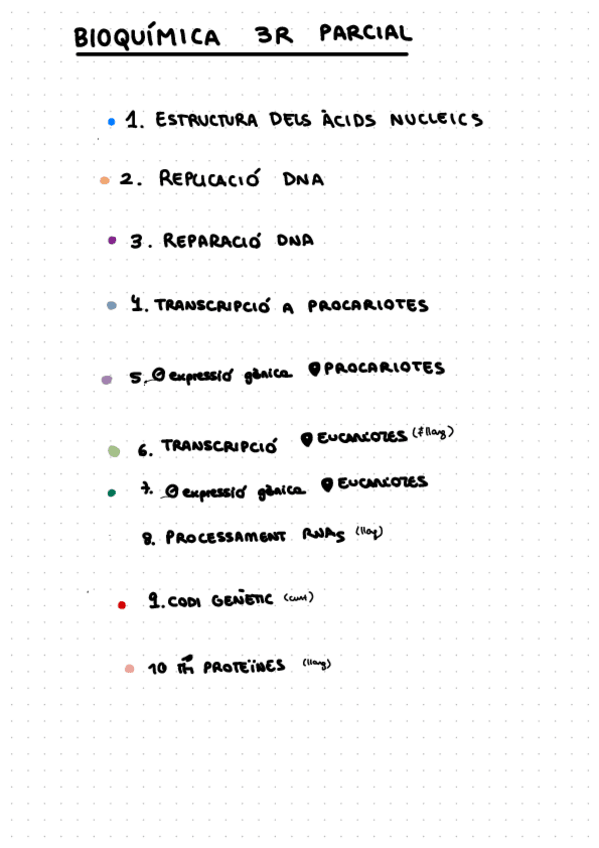 BIOQUÍMICA 3R PARCIAL
1. ESTRUCTURA DELS ÀCIDS NUCLEICS
2. REPLICACIÓ DNA
3. REPARACIÓ DNA
4. TRANSCRIPCIÓ A PROCARIOTES
5. expressió gènica PROCARIOTES
6. TRANSCRIPCIÓ EUCARIOTES (llarg)
7. expressió gènica EUCARIOTES
8. PROCESSAMENT RNAs (llarg)
9. CODI GENÈTIC (curt)
10 PROTEÏNES (llarg)